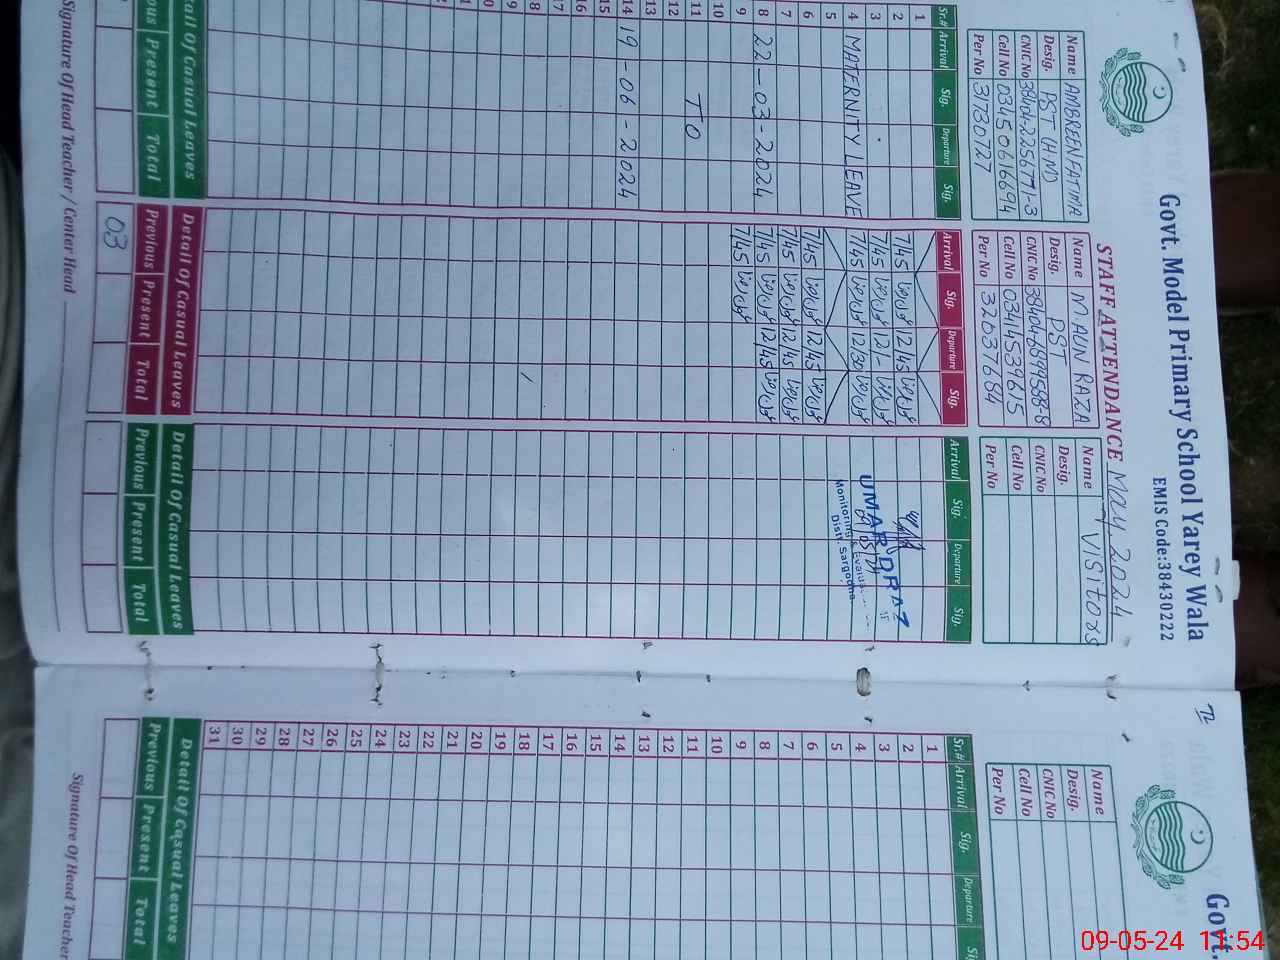 Govt. Model Primary School Yarey Wala
EMIS Code:38430222
STAFF ATTENDANCE May, 2024
Name AMBREEN FATIMA
Desig. PST (H.M)
CNIC No 38401-2256771-3
Cell No 03450616694
Per No 31730727
Name M. AUN RAZA
Desig. PST
CNIC No
Cell No 03414539615
Per No 32037684
Name VISITORS
Desig.
CNIC No
Cell No
Per No
Sr.# Arrival Sig. Departure Sig.
Arrival Sig. Departure Sig.
Arrival Sig. Departure Sig.
1
2 7/45 12/45
3 7/45 12/-
4 MATERNITY LEAVE 7/45 12/30
5
6 7/45 12/45
7 7/45 12/45
8 22-03-2024 7/45 12/45
9 7/45
10
11 TO
12
13
14 19-06-2024
15
16
17
UMAR DRAZ
Monitoring &
Distt. Sargodha
Detail Of Casual Leaves
Present Total
Detail Of Casual Leaves
Previous Present Total
03
Detail Of Casual Leaves
Previous Present Total
Signature Of Head Teacher / Center Head
Govt.
Name
Desig.
CNIC No
Cell No
Per No
Sr.# Arrival Sig. Departure
1
2
3
4
5
6
7
8
9
10
11
12
13
14
15
16
17
18
19
20
21
22
23
24
25
26
27
28
29
30
31
Detail Of Casual Leaves
Previous Present Total
Signature Of Head Teacher
09-05-24 11:54